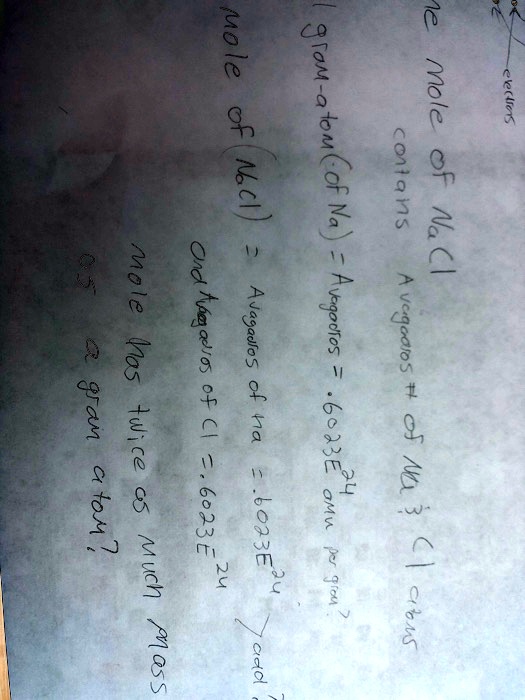 electrons
ne mole of NaCl
contains Avagadros # of Na & Cl atoms
1 gram-atom (of Na) = Avagadros = .6023E²⁴ amu per gram?
mole of (NaCl) = Avagadros of Na = .6023E²⁴
and Avagadros of Cl = .6023E²⁴ > add?
mole has twice as much mass
as a gram atom?